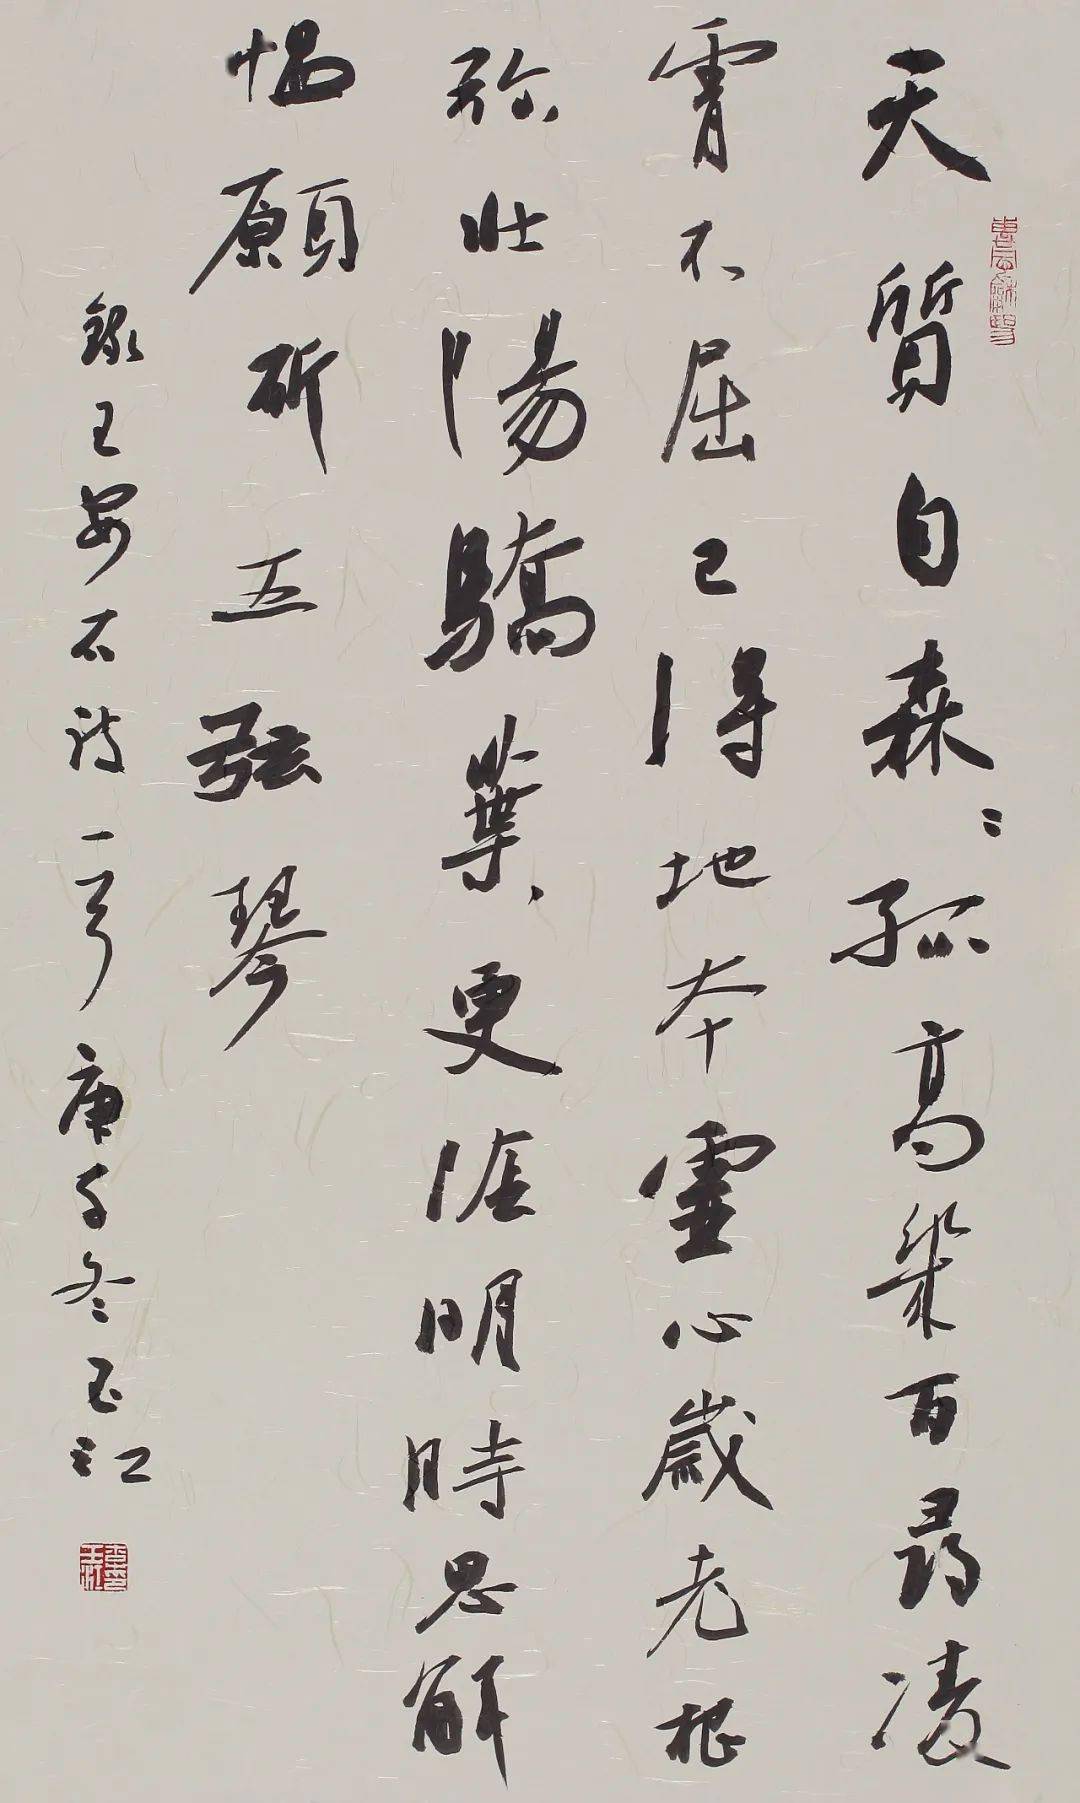 天質自森〻孤高幾百尋凌
霄不屈己得地本虛心歲老根
弥壯陽驕葉更陰明時思解
愠願斫五弦琴
錄王安石詩一首庚子冬玉江